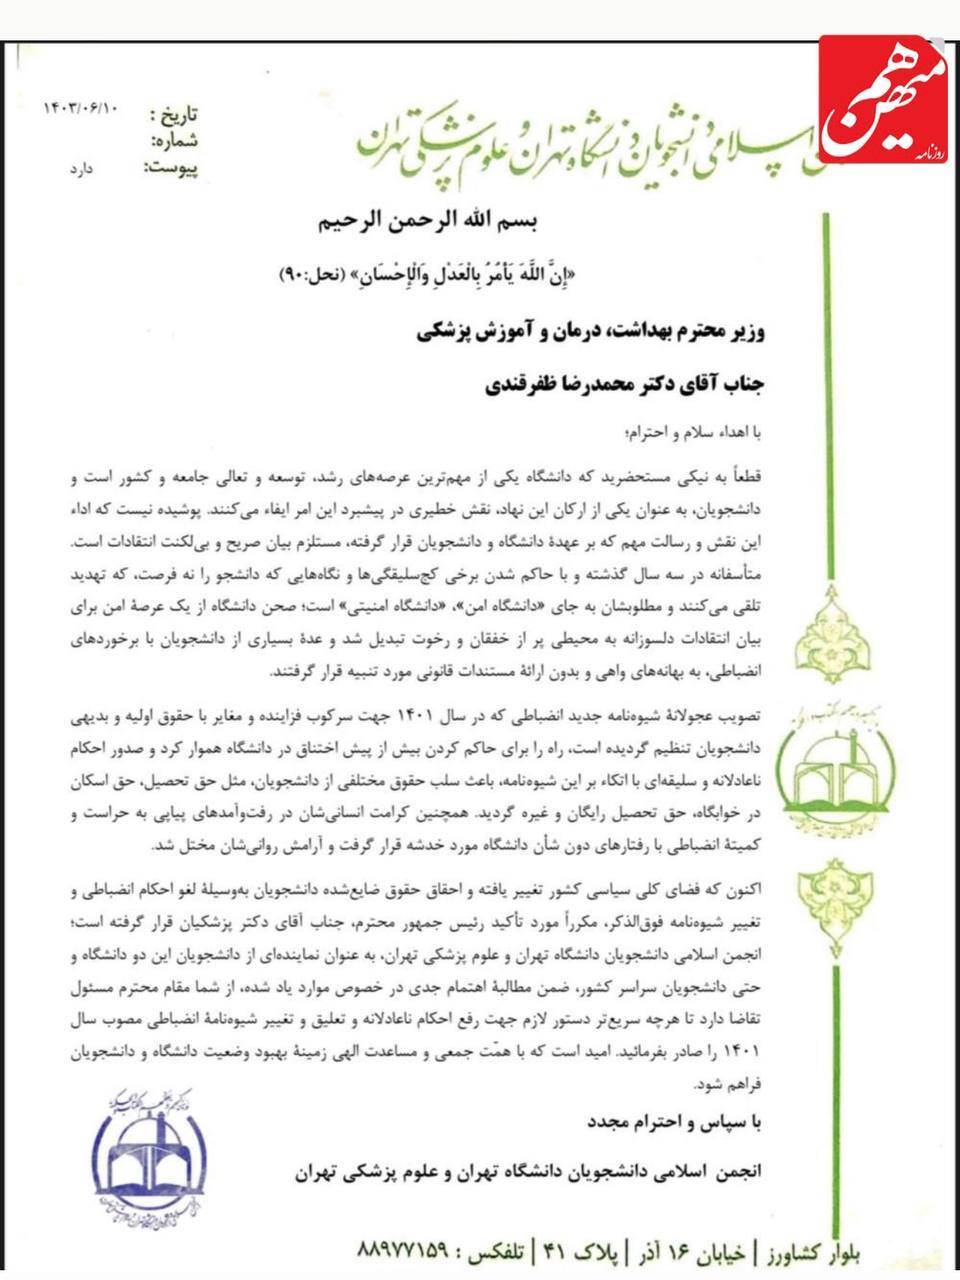 هم میهن
روزنامه
اسلامی دانشجویان دانشگاه تهران و علوم پزشکی تهران
تاریخ : ۱۴۰۳/۰۶/۱۰
شماره:
پیوست: دارد
بسم الله الرحمن الرحیم
«إِنَّ اللَّهَ يَأْمُرُ بِالْعَدْلِ وَالْإِحْسَانِ» (نحل:۹۰)
وزیر محترم بهداشت، درمان و آموزش پزشکی
جناب آقای دکتر محمدرضا ظفرقندی
با اهداء سلام و احترام؛
قطعاً به نیکی مستحضرید که دانشگاه یکی از مهم‌ترین عرصه‌های رشد، توسعه و تعالی جامعه و کشور است و
دانشجویان، به عنوان یکی از ارکان این نهاد، نقش خطیری در پیشبرد این امر ایفاء می‌کنند. پوشیده نیست که اداء
این نقش و رسالت مهم که بر عهدهٔ دانشگاه و دانشجویان قرار گرفته، مستلزم بیان صریح و بی‌لکنت انتقادات است.
متأسفانه در سه سال گذشته و با حاکم شدن برخی کج‌سلیقگی‌ها و نگاه‌هایی که دانشجو را نه فرصت، که تهدید
تلقی می‌کنند و مطلوبشان به جای «دانشگاه امن»، «دانشگاه امنیتی» است؛ صحن دانشگاه از یک عرصهٔ امن برای
بیان انتقادات دلسوزانه به محیطی پر از خفقان و رخوت تبدیل شد و عدهٔ بسیاری از دانشجویان با برخوردهای
انضباطی، به بهانه‌های واهی و بدون ارائهٔ مستندات قانونی مورد تنبیه قرار گرفتند.
تصویب عجولانهٔ شیوه‌نامه جدید انضباطی که در سال ۱۴۰۱ جهت سرکوب فزاینده و مغایر با حقوق اولیه و بدیهی
دانشجویان تنظیم گردیده است، راه را برای حاکم کردن بیش از پیش اختناق در دانشگاه هموار کرد و صدور احکام
ناعادلانه و سلیقه‌ای با اتکاء بر این شیوه‌نامه، باعث سلب حقوق مختلفی از دانشجویان، مثل حق تحصیل، حق اسکان
در خوابگاه، حق تحصیل رایگان و غیره گردید. همچنین کرامت انسانی‌شان در رفت‌وآمدهای پیاپی به حراست و
کمیتهٔ انضباطی با رفتارهای دون شأن دانشگاه مورد خدشه قرار گرفت و آرامش روانی‌شان مختل شد.
اکنون که فضای کلی سیاسی کشور تغییر یافته و احقاق حقوق ضایع‌شده دانشجویان به‌وسیلهٔ لغو احکام انضباطی و
تغییر شیوه‌نامه فوق‌الذکر، مکرراً مورد تأکید رئیس جمهور محترم، جناب آقای دکتر پزشکیان قرار گرفته است؛
انجمن اسلامی دانشجویان دانشگاه تهران و علوم پزشکی تهران، به عنوان نماینده‌ای از دانشجویان این دو دانشگاه و
حتی دانشجویان سراسر کشور، ضمن مطالبهٔ اهتمام جدی در خصوص موارد یاد شده، از شما مقام محترم مسئول
تقاضا دارد تا هرچه سریع‌تر دستور لازم جهت رفع احکام ناعادلانه و تعلیق و تغییر شیوه‌نامهٔ انضباطی مصوب سال
۱۴۰۱ را صادر بفرمائید. امید است که با همّت جمعی و مساعدت الهی زمینهٔ بهبود وضعیت دانشگاه و دانشجویان
فراهم شود.
با سپاس و احترام مجدد
انجمن اسلامی دانشجویان دانشگاه تهران و علوم پزشکی تهران
بلوار کشاورز | خیابان ۱۶ آذر | پلاک ۴۱ | تلفکس : ۸۸۹۷۷۱۵۹